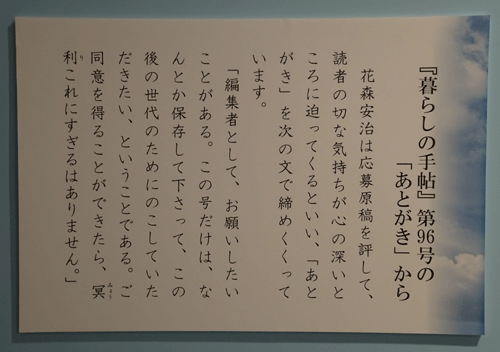 『暮らしの手帖』第96号の
「あとがき」から
花森安治は応募原稿を評して、
読者の切な気持ちが心の深いと
ころに迫ってくるといい、「あと
がき」を次の文で締めくくって
います。
「編集者として、お願いしたい
ことがある。この号だけは、な
んとか保存して下さって、この
後の世代のためにのこしていた
だきたい、ということである。ご
同意を得ることができたら、冥
利これにすぎるはありません。」